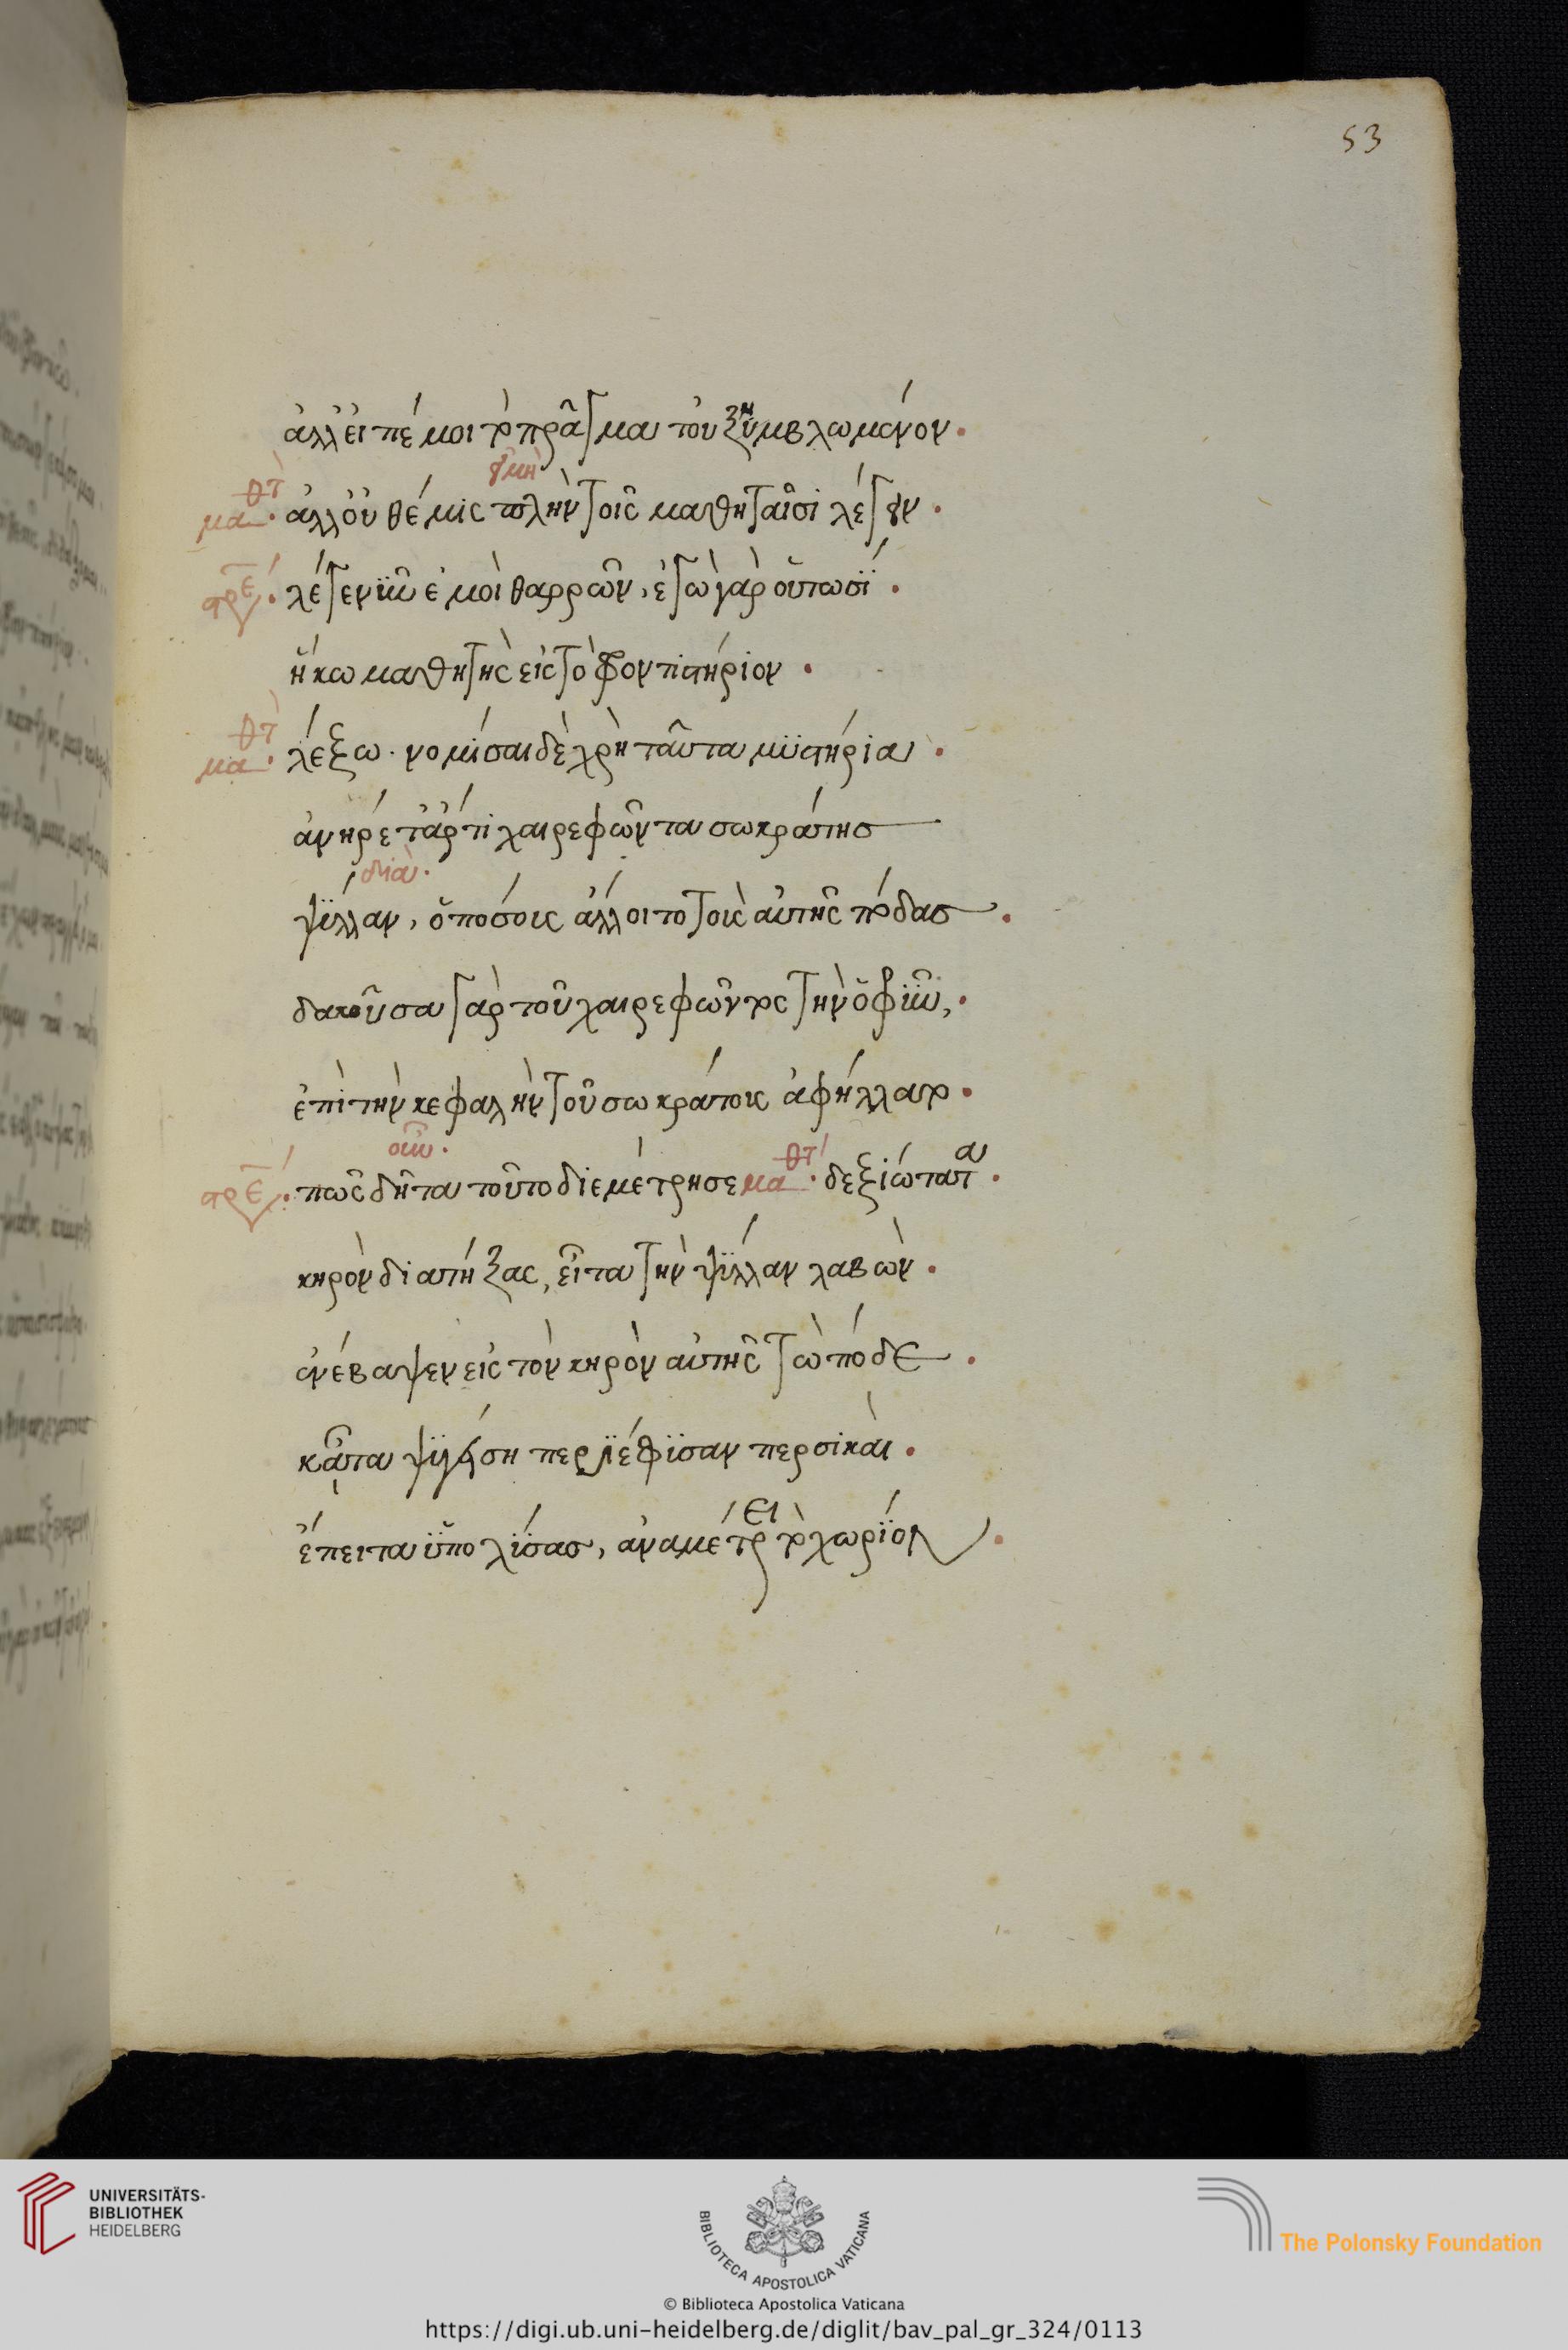 53
ἀλλ' εἰπέ μοι τὸ πρᾶγμα τοὐξυμβλωμένον.
η
εἰ μὴ
μαθτ. ἀλλ' οὐ θέμις πλὴν τοῖς μαθηταῖσι λέγειν.
στρε. λέγε νῦν ἐμοὶ θαρρῶν, ἐγὼ γὰρ οὕτωσϊ.
ἥκω μαθητὴς εἰς τὸ φροντιστήριον.
μαθτ. λέξω. νομίσαι δὲ χρὴ ταῦτα μϋστήρια.
ἀνήρετ' ἄρτι χαιρεφῶντα σωκράτης
διὰ.
ψύλλαν, ὁπόσους ἄλλοιτο τοὺς αὐτῆς πόδας.
δακοῦσα γὰρ τοῦ χαιρεφῶντος τὴν ὀφρῦν,.
ἐπὶ τὴν κεφαλὴν τοῦ σωκράτους ἀφήλλατο.
οὖν.
στρε. πῶς δῆτα τοῦτο διεμέτρησε μαθτ. δεξιώτατα.
κηρὸν διατήξας, εἶτα τὴν ψύλλαν λαβὼν.
ἐνέβαψεν εἰς τὸν κηρὸν αὐτῆς τὼ πόδε.
κᾆτα ψϋγείση περιέφϋσαν περσικὰι.
ἔπειτα ὕπολϋσας, ἀναμέτρει τὸ χωρίον.
UNIVERSITÄTS-
BIBLIOTHEK
HEIDELBERG
BIBLIOTECA APOSTOLICA VATICANA
The Polonsky Foundation
© Biblioteca Apostolica Vaticana
https://digi.ub.uni-heidelberg.de/diglit/bav_pal_gr_324/0113